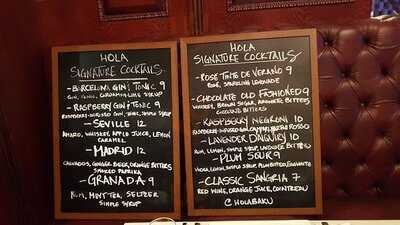 HOLA
SIGNATURE COCKTAILS
- BARCELONA GIN & TONIC 9
SYRUP
- RASPBERRY GIN & TONIC 9
RASPBERRY-INFUSED GIN, TONIC, SIMPLE SYRUP
- SEVILLE 12
AMARO, WHISKEY, APPLE JUICE, LEMON
CARAMEL
- MADRID 12
CALVADOS, GINGER BEER, ORANGE BITTERS
SMOKED PAPRIKA
- GRANADA 9
RUM, MINT TEA, SELTZER
SIMPLE SYRUP
HOLA
SIGNATURE COCKTAILS
- ROSE TINTO DE VERANO 9
ROSE, SPARKLING LEMONADE
- CHOCOLATE OLD FASHIONED 9
WHISKEY, BROWN SUGAR, AROMATIC BITTERS
BITTERS
- RASPBERRY NEGRONI 10
RASPBERRY-INFUSED GIN, CAMPARI, ROSSO
- LAVENDER DAIQUIRY 10
RUM, LEMON, SIMPLE SYRUP, LAVENDER BITTERS
- PLUM SOUR 9
VODKA, LEMON, SIMPLE SYRUP, PLUM BITTERS
- CLASSIC SANGRIA 7
RED WINE, ORANGE JUICE, COINTREAU
@HOLABAKU